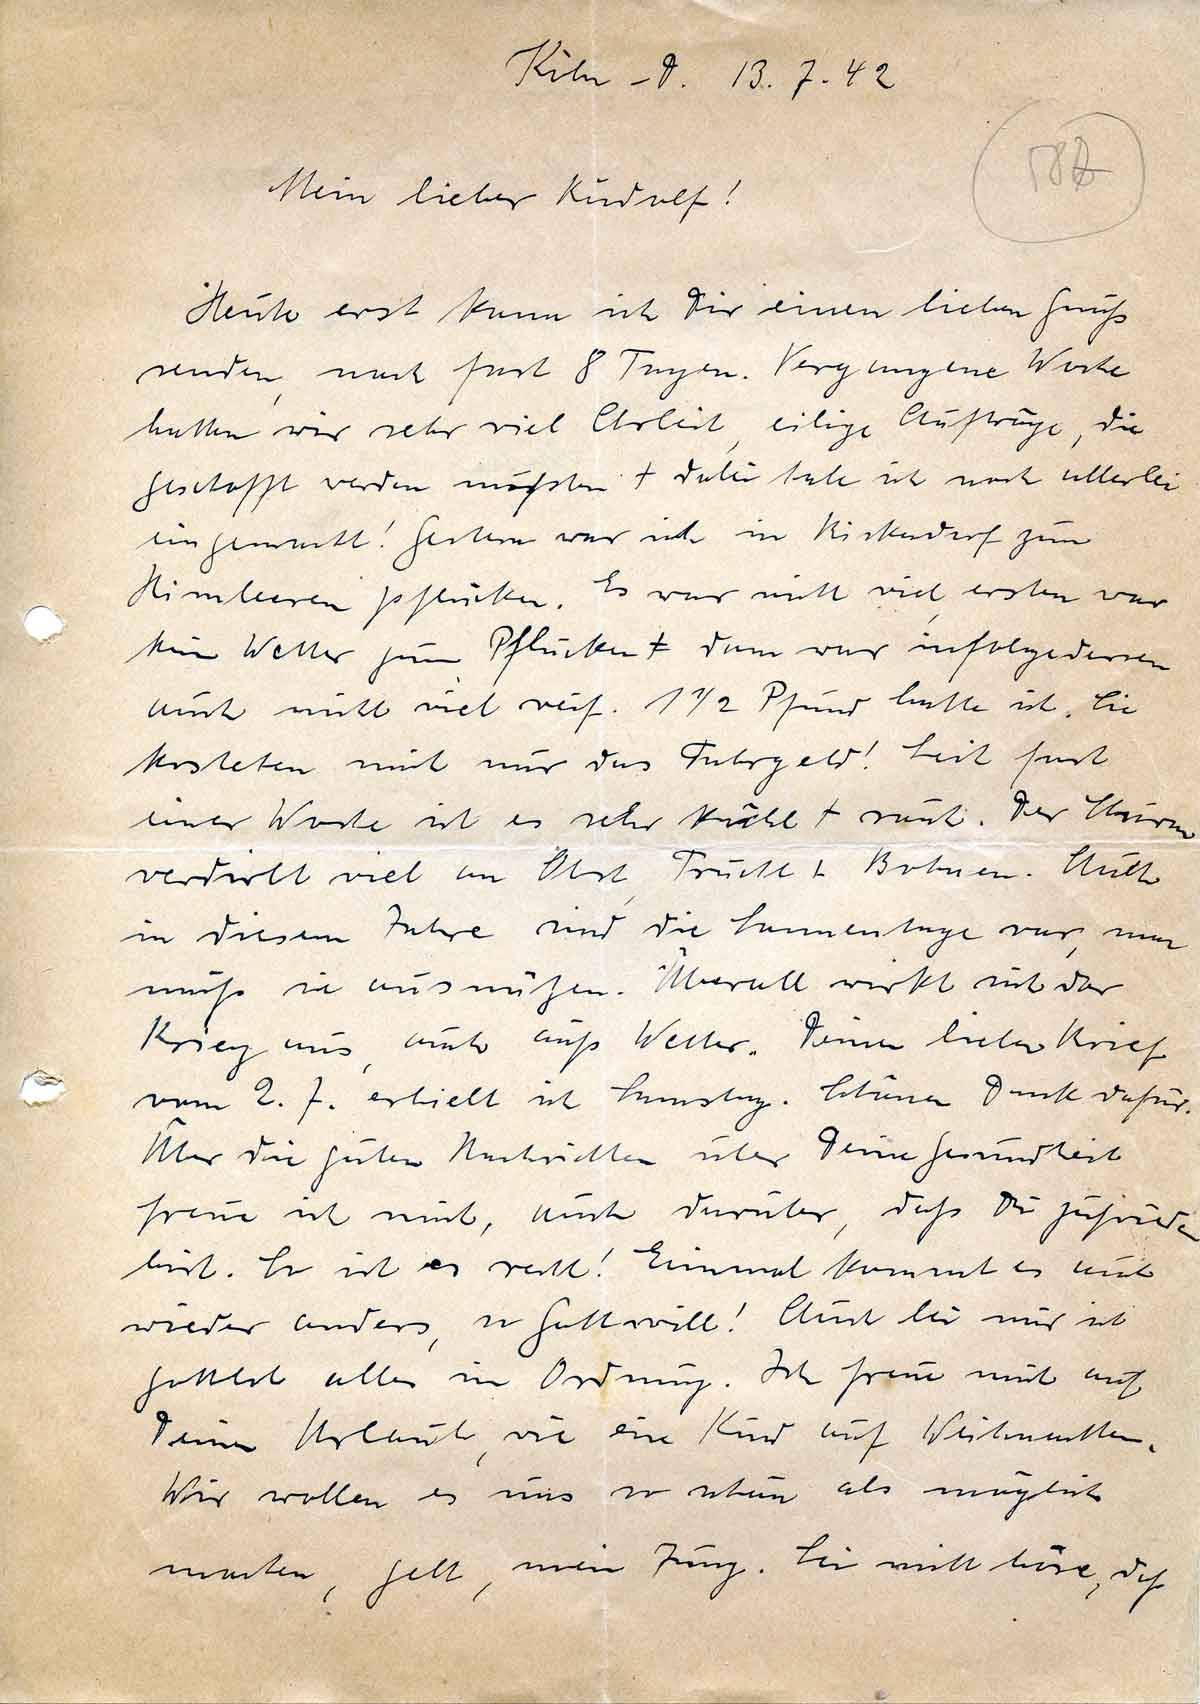 Köln-D. 13.7.42
Mein lieber Rudolf!
Heute erst kann ich Dir einen lieben Gruß
senden, nach fast 8 Tagen. Vergangene Woche
hatten wir sehr viel Arbeit, eilige Aufträge, die
geschafft werden mußten + dabei habe ich noch allerlei
eingemacht! Gestern war ich in zum
Himbeeren pflücken. Es war nicht viel, ersten war
kein Wetter zum Pflücken + dann war infolgedessen
auch nicht viel reif. 1 1/2 Pfund hatte ich. Sie
kosteten mich nur das Fahrgeld! Seit fast
einer Woche ist es sehr kühl + rauh. Der Sturm
verdirbt viel an Obst, Frucht + Bohnen. Auch
in diesem Jahre sind die Sonnentage rar, man
muß sie ausnützen. Überall wirkt sich der
Krieg aus, auch aufs Wetter. Deinen lieben Brief
vom 2.7. erhielt ich Samstag. Schönen Dank dafür.
Über die guten Nachrichten über Deine Gesundheit
freue ich mich, auch darüber, daß Du zufrieden
bist. So ist es recht! Einmal kommt es auch
wieder anders, so Gott will! Auch bei mir ist
gottlob alles in Ordnung. Ich freue mich auf
Deinen Urlaub, wie ein Kind auf Weihnachten.
Wir wollen es uns so schön als möglich
machen, gelt, mein Jung. Sei nicht böse, daß